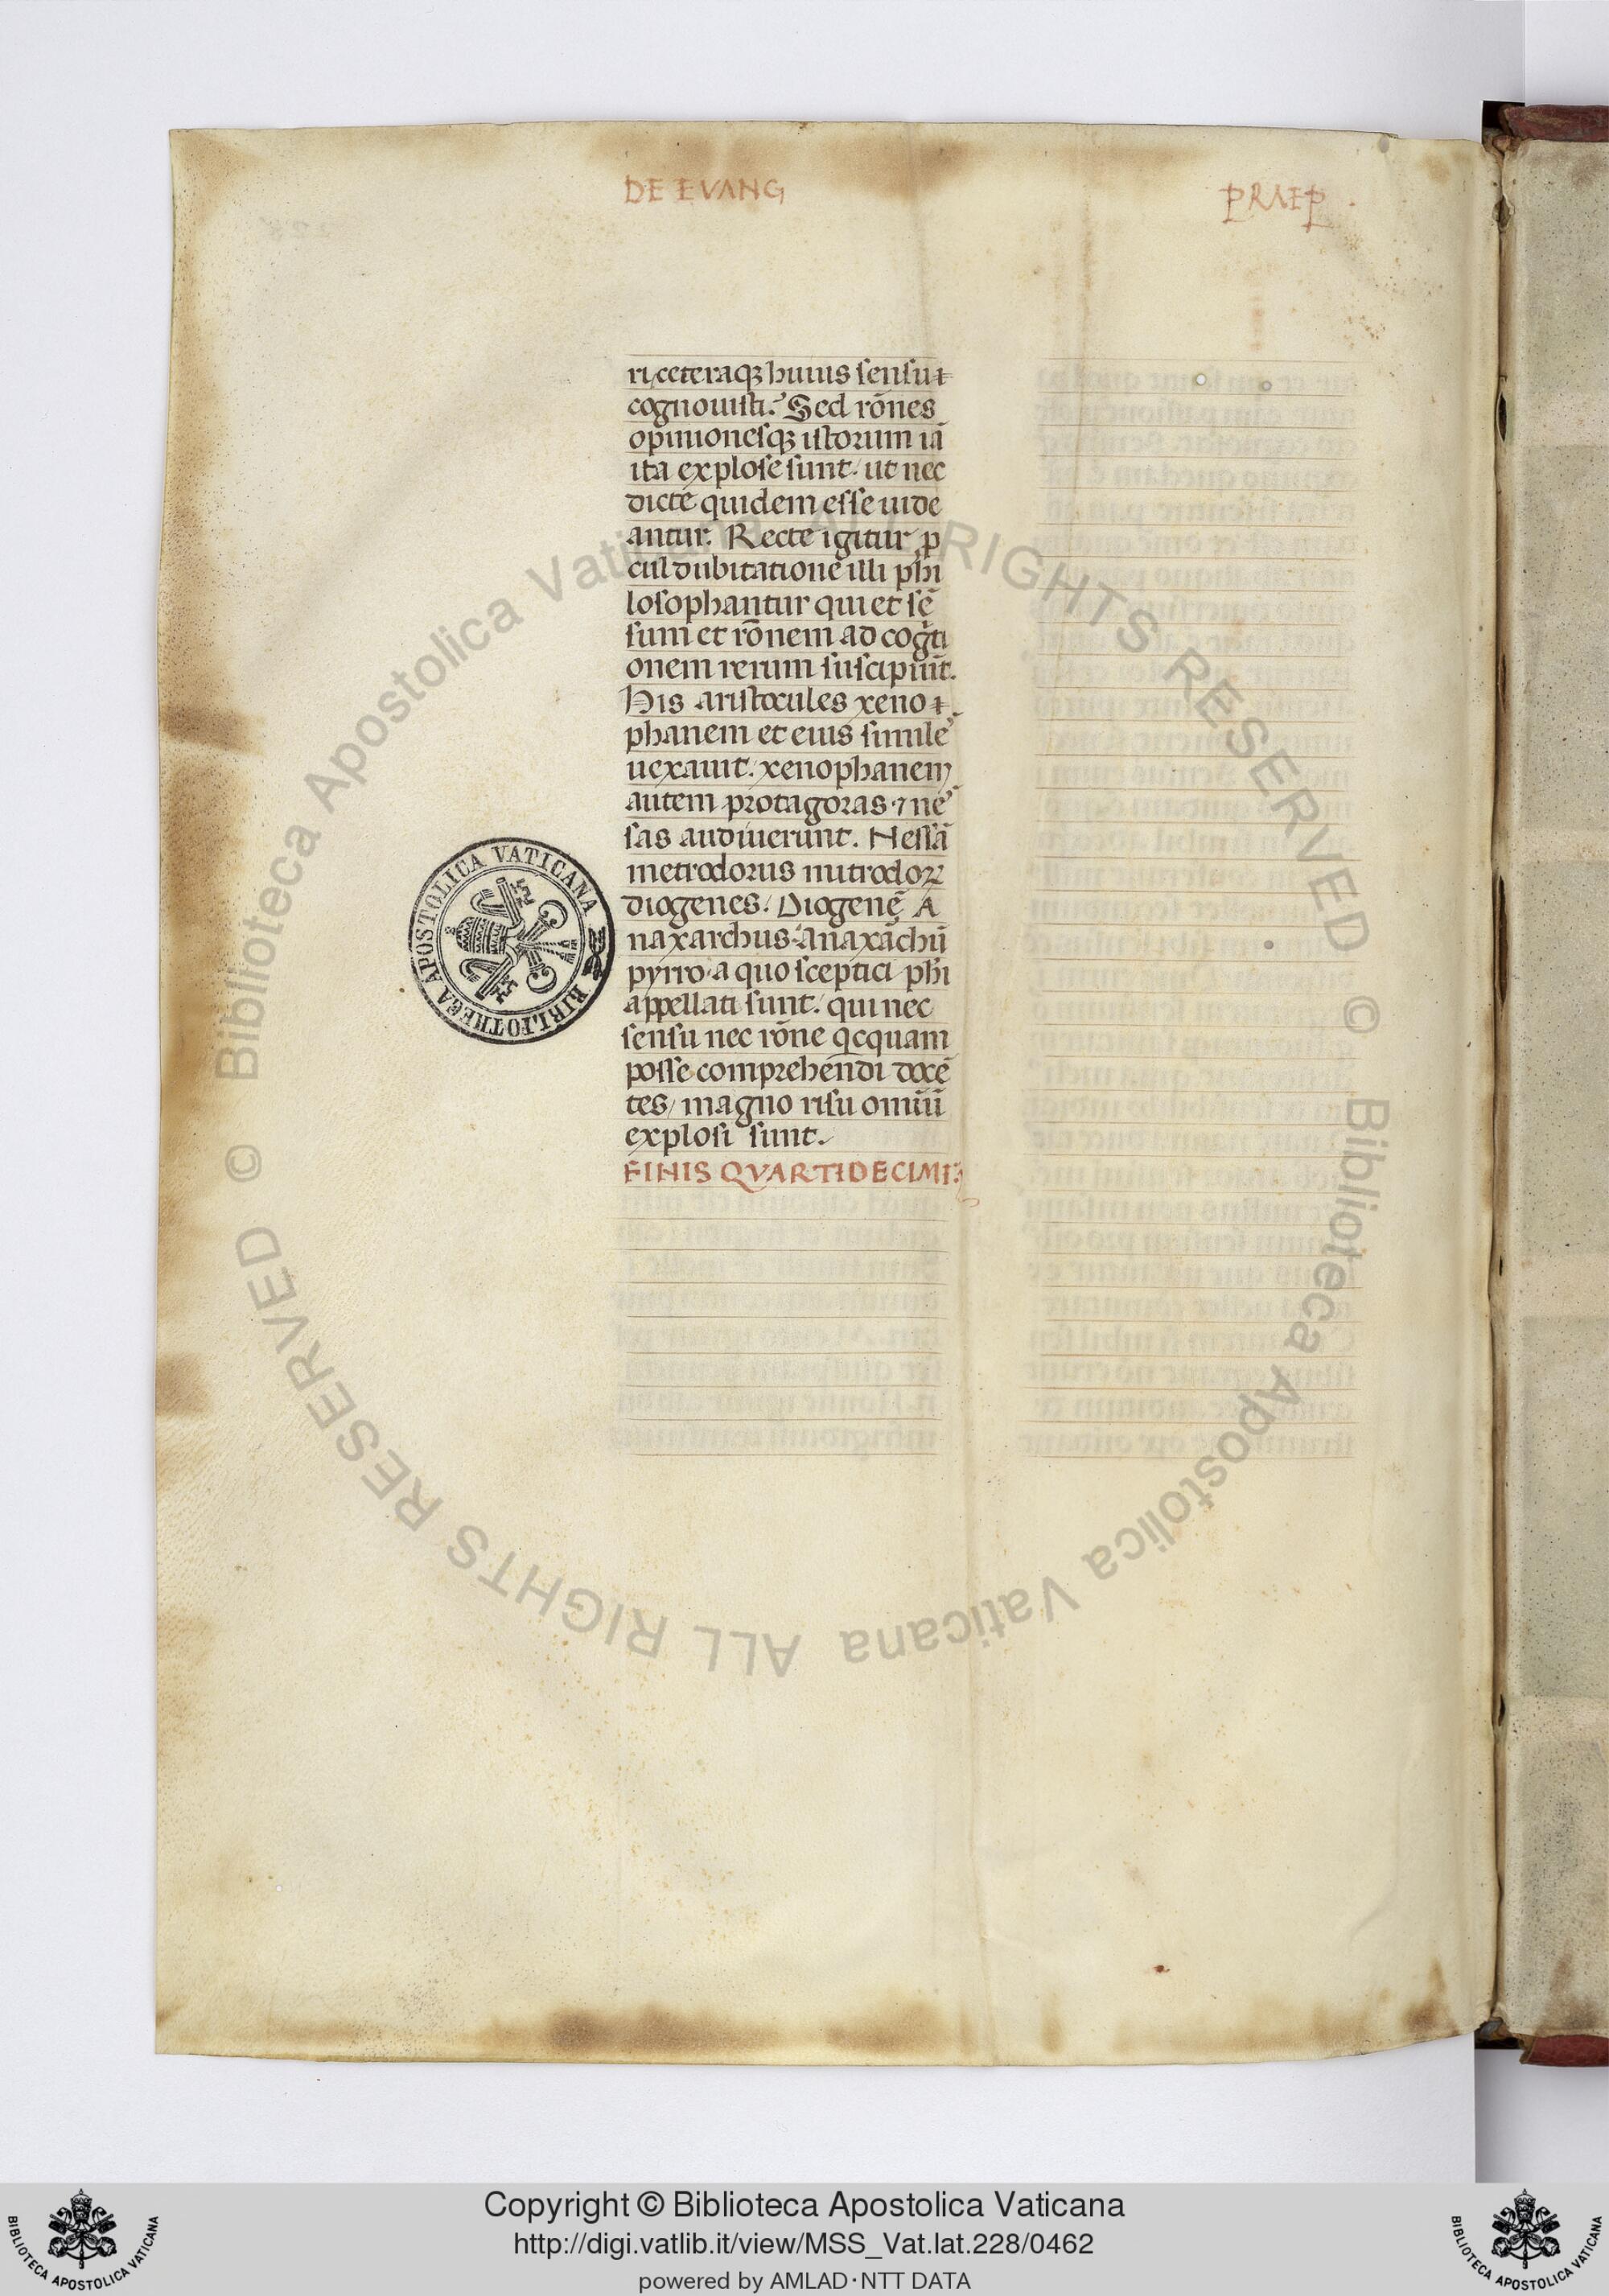 DE EVANG PRAEP .
ri, ceteraqꝫ huius sensu
cognouisti. Sed rōnes
opinionesqꝫ istorum iā
ita explose sunt. ut nec
dicte quidem esse uide
antur. Recte igitur p
cul dubitatione illi phi
losophantur qui et sē
sum et rōnem ad cogti
onem rerum suscipiūt.
His aristocules xeno
phanem et eius simile
uexauit. xenophanem
autem protagoras ⁊ ne
sas audiuerunt. Nessā
metrodorus mitrodoꝝ
diogenes. Diogenē A
naxarchus. Anaxāchū
pyrro. a quo sceptici phi
appellati sunt. qui nec
sensu nec rōne qcquam
posse comprehendi docē
tes, magno risu omiū
explosi sunt.
FINIS QVARTIDECIMI:
BIBLIOTHECA APOSTOLICA VATICANA
© Biblioteca Apostolica Vaticana ALL RIGHTS RESERVED
© Biblioteca Apostolica Vaticana ALL RIGHTS RESERVED
Copyright © Biblioteca Apostolica Vaticana
http://digi.vatlib.it/view/MSS_Vat.lat.228/0462
powered by AMLAD·NTT DATA
BIBLIOTECA APOSTOLICA VATICANA
BIBLIOTECA APOSTOLICA VATICANA